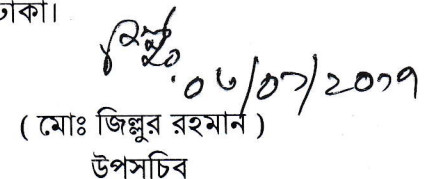 ঢাকা।
০৬/০১/২০১৭
( মোঃ জিল্লুর রহমান )
উপসচিব